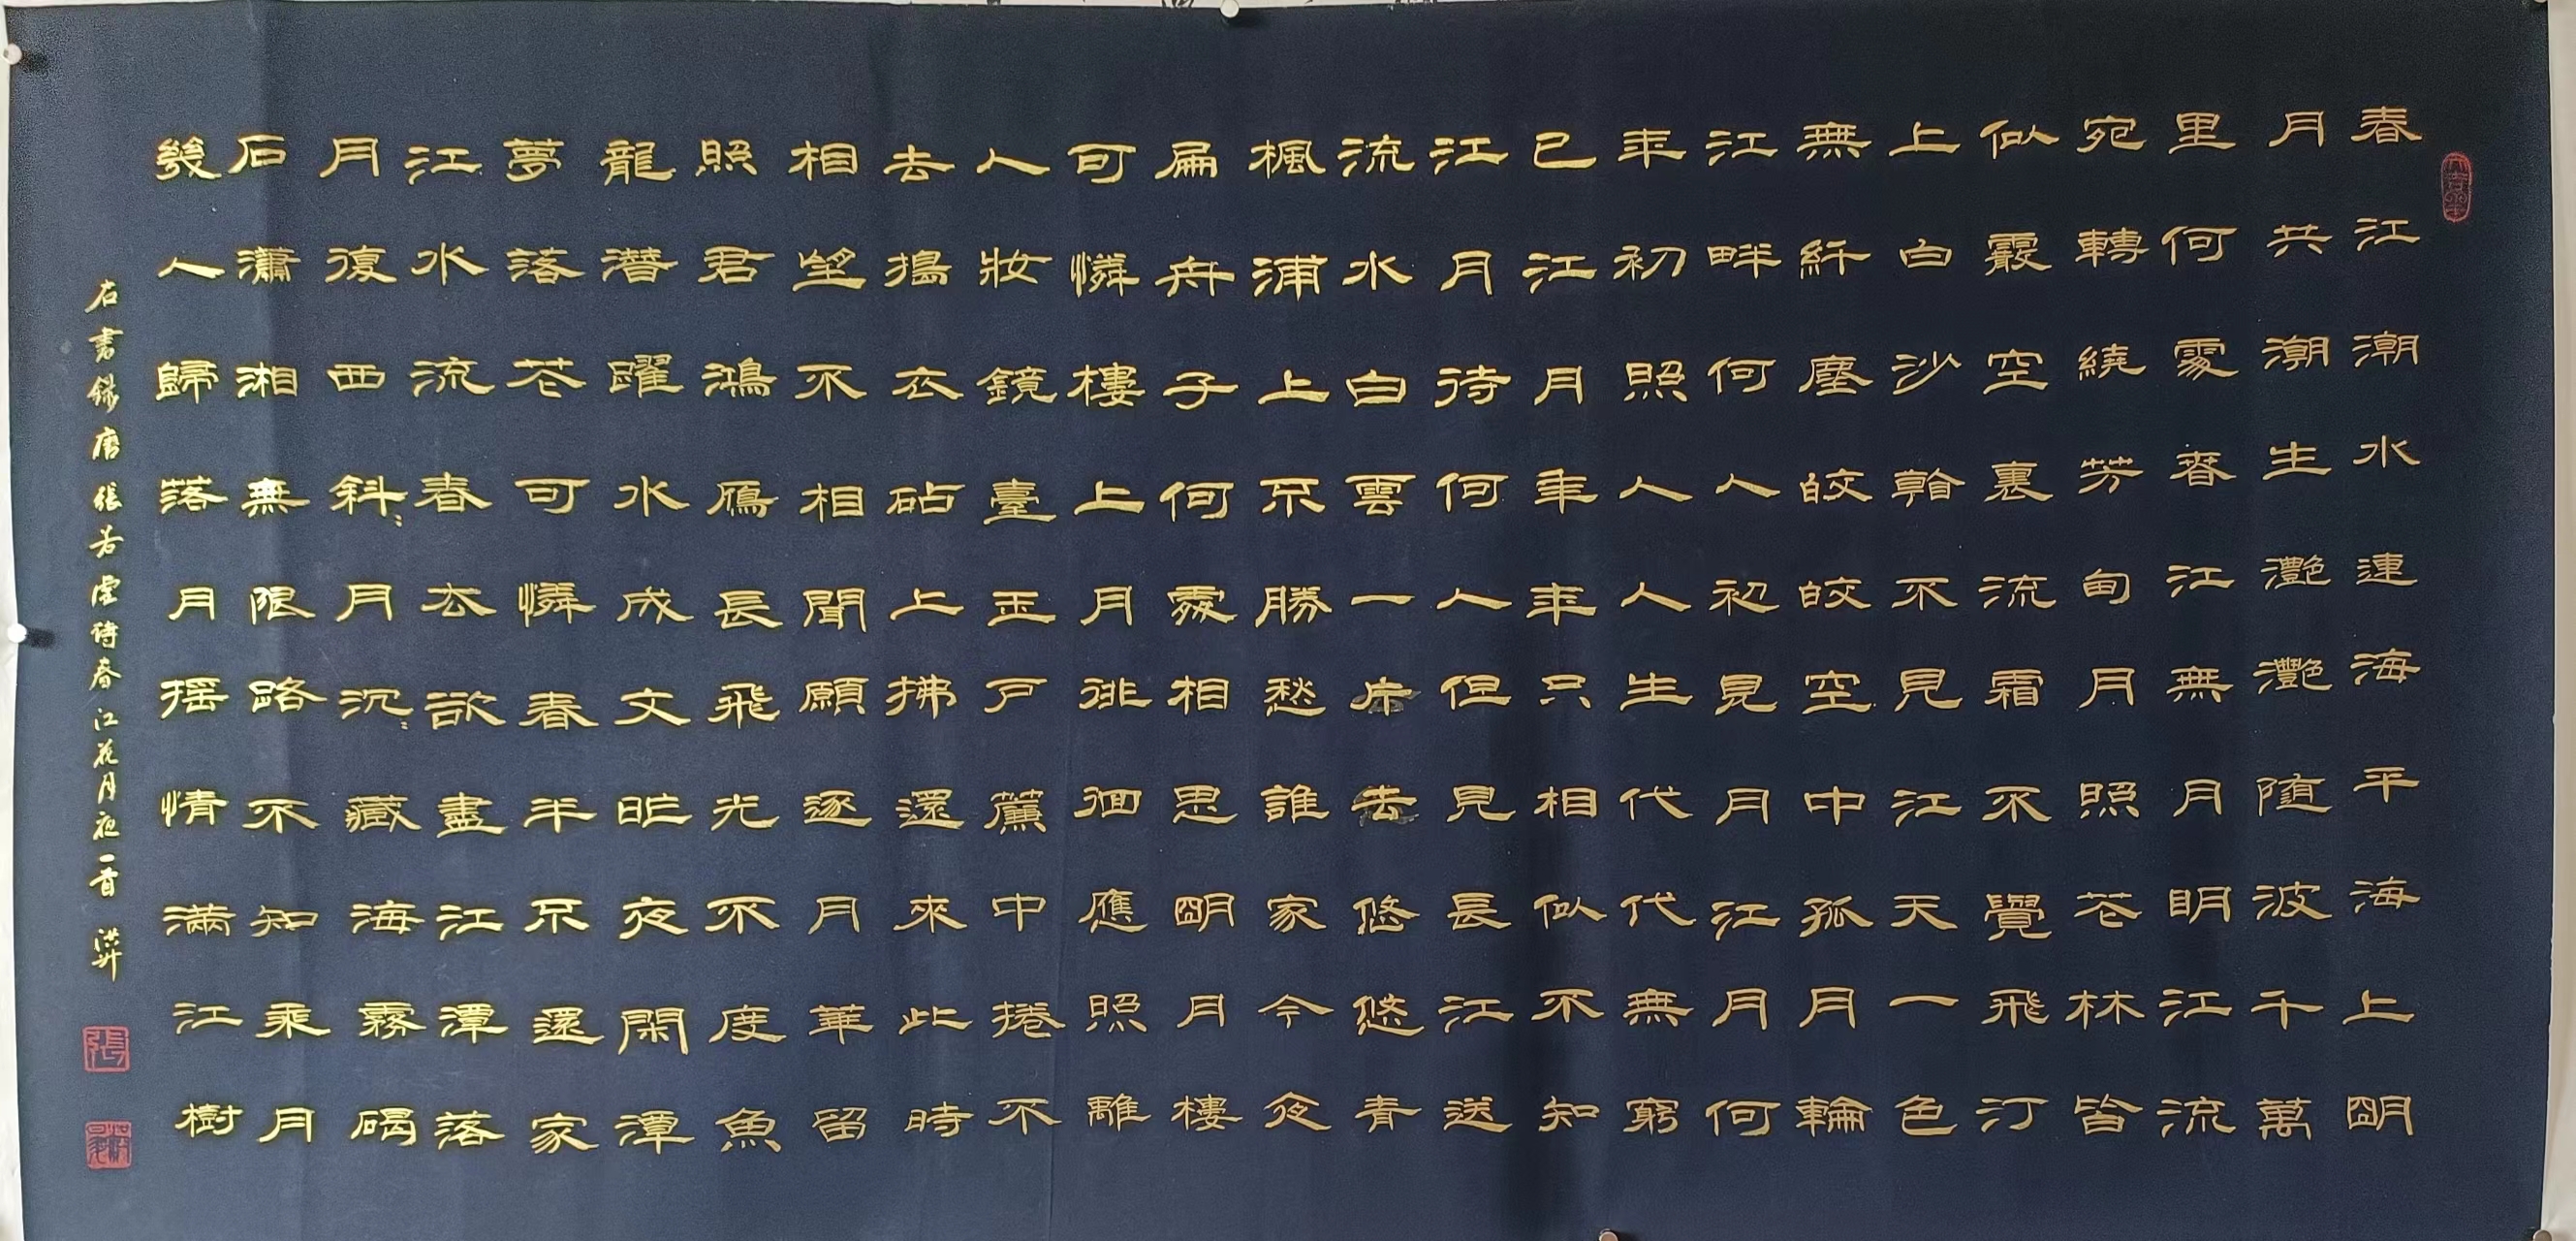 春江潮水連海平海上明
月共潮生灩灩随波千萬
里何處春江無月明江流
宛轉繞芳甸月照花林皆
似霰空裏流霜不覺飛汀
上白沙看不見江天一色
無纤塵皎皎空中孤月輪
江畔何人初見月江月何
年初照人人生代代無窮
已江月年年只相似不知
江月待何人但見長江送
流水白雲一片去悠悠青
楓浦上不勝愁誰家今夜
扁舟子何處相思明月樓
可憐樓上月徘徊應照離
人妝鏡臺玉戶簾中捲不
去搗衣砧上拂還來此時
相望不相聞願逐月華留
照君鴻雁長飛光不度魚
龍潛躍水成文昨夜閑潭
夢落花可憐春半不還家
江水流春去欲盡江潭落
月復西斜〻月沉〻藏海霧碣
石瀟湘無限路不知乘月
幾人歸落月摇情滿江樹
右書録唐張若虛詩春江花月夜一首 洪昇
張